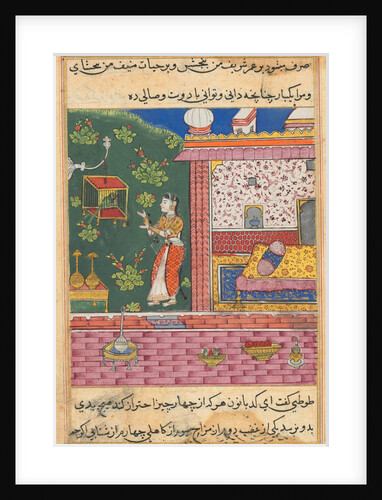 صرف میشود بر عمر شریف من ببخش و بر حیات منیف من بخشای
و مرا یکبار چنانچه دانی و توانی با دوست وصالی ده
طوطی گفت ای کدبانو هر که از چهار چیز احتراز کند هیچ بدی
بدو نرسد یکی از غضب دوم از مزاح سیوم از کاهلی چهارم از شتابی اگرچه